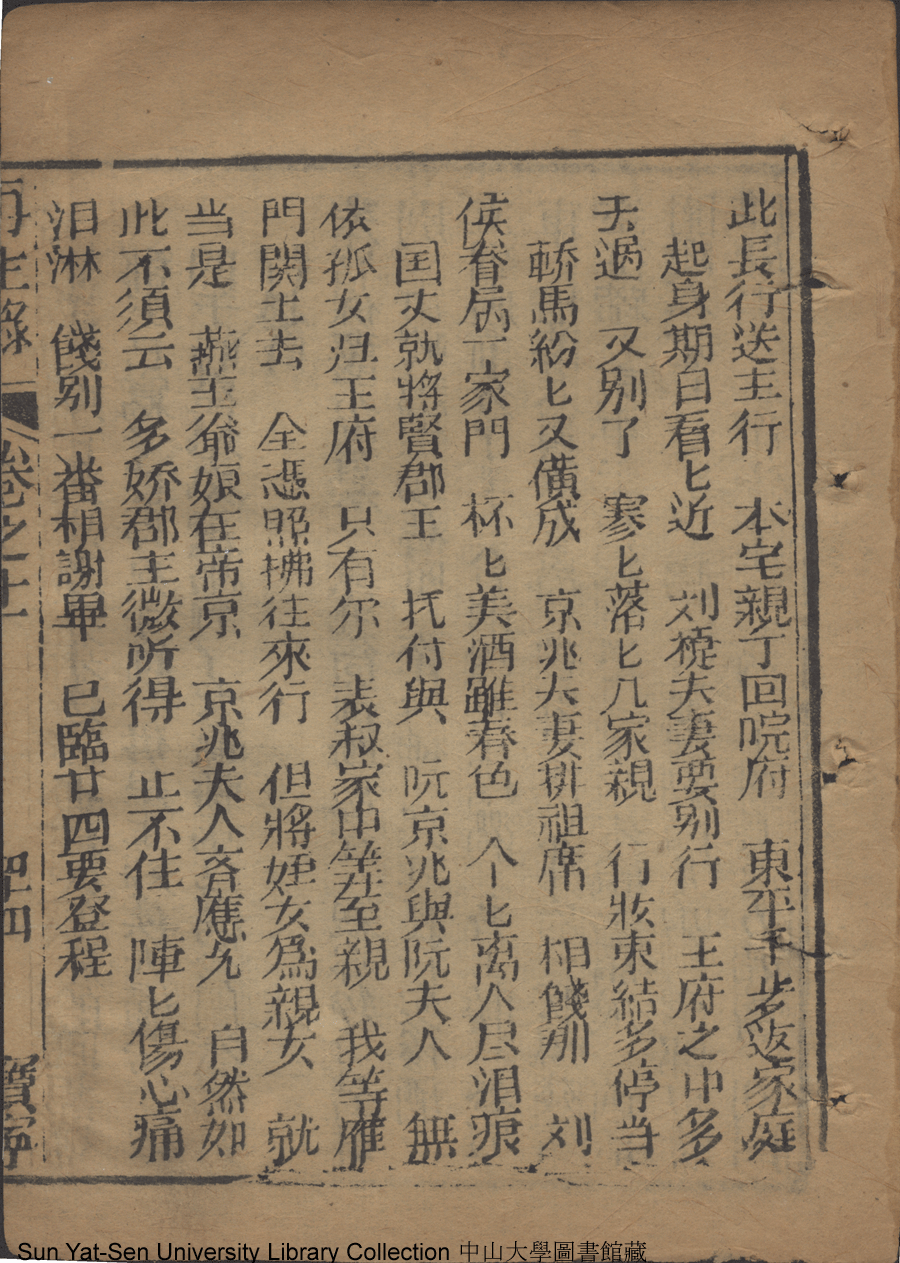 此長行送主行　本宅親丁回院府　東平千步返家庭
起身期日看匕近　刘捷夫妻要别行　王府之中多
去過　又别了　寥匕落匕几家親　行妝束結多停当
轎馬紛匕又儀成　京兆夫妻排祖席　相餞那　刘
侯眷属一家門　杯匕美酒雖春色　个匕离人尽泪痕
国丈就將賢郡王　托付與　阮京兆與阮夫人　無
依孤女归王府　只有尔　表叔家中等至親　我等雁
門関上去　全憑照拂往來行　但將姪女爲親女　就
当是　燕王爺娘在帝京　京兆夫人咨應允　自然如
此不須云　多娇郡主微听得　止不住　陣匕傷心痛
泪淋　餞别一番相謝畢　已臨廿四要登程
再生緣　卷之十一　四十四　寶寧
Sun Yat-Sen University Library Collection 中山大學圖書館藏